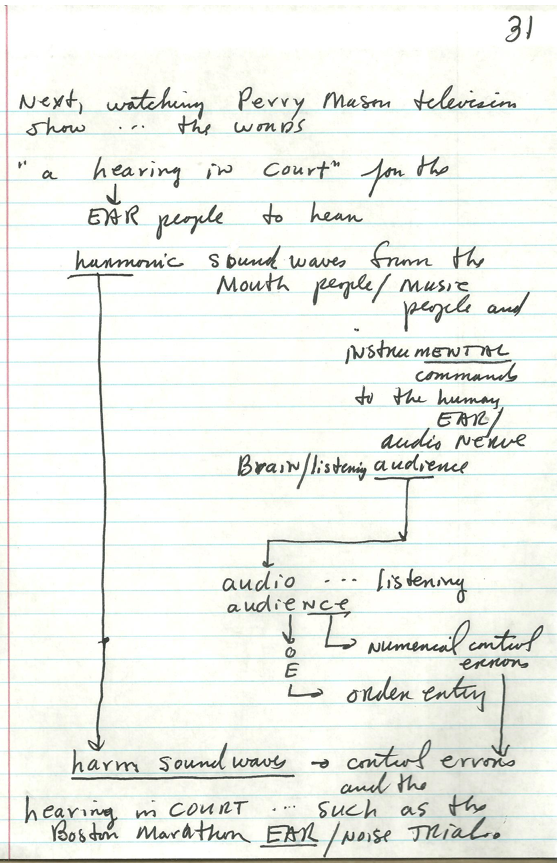 31
Next, watching Perry Mason television
show ... the words
"a hearing in court" for the
EAR people to hear
harmonic sound waves from the
Mouth people/music
people and
instruMENTAL
commands
to the human
EAR/
audio NERVE
Brain/listening audience
audio ... listening
audience
O
E
numerical control
errors
order entry
harm sound waves → control errors
and the
hearing in COURT ... such as the
Boston Marathon EAR/NOISE TRial.